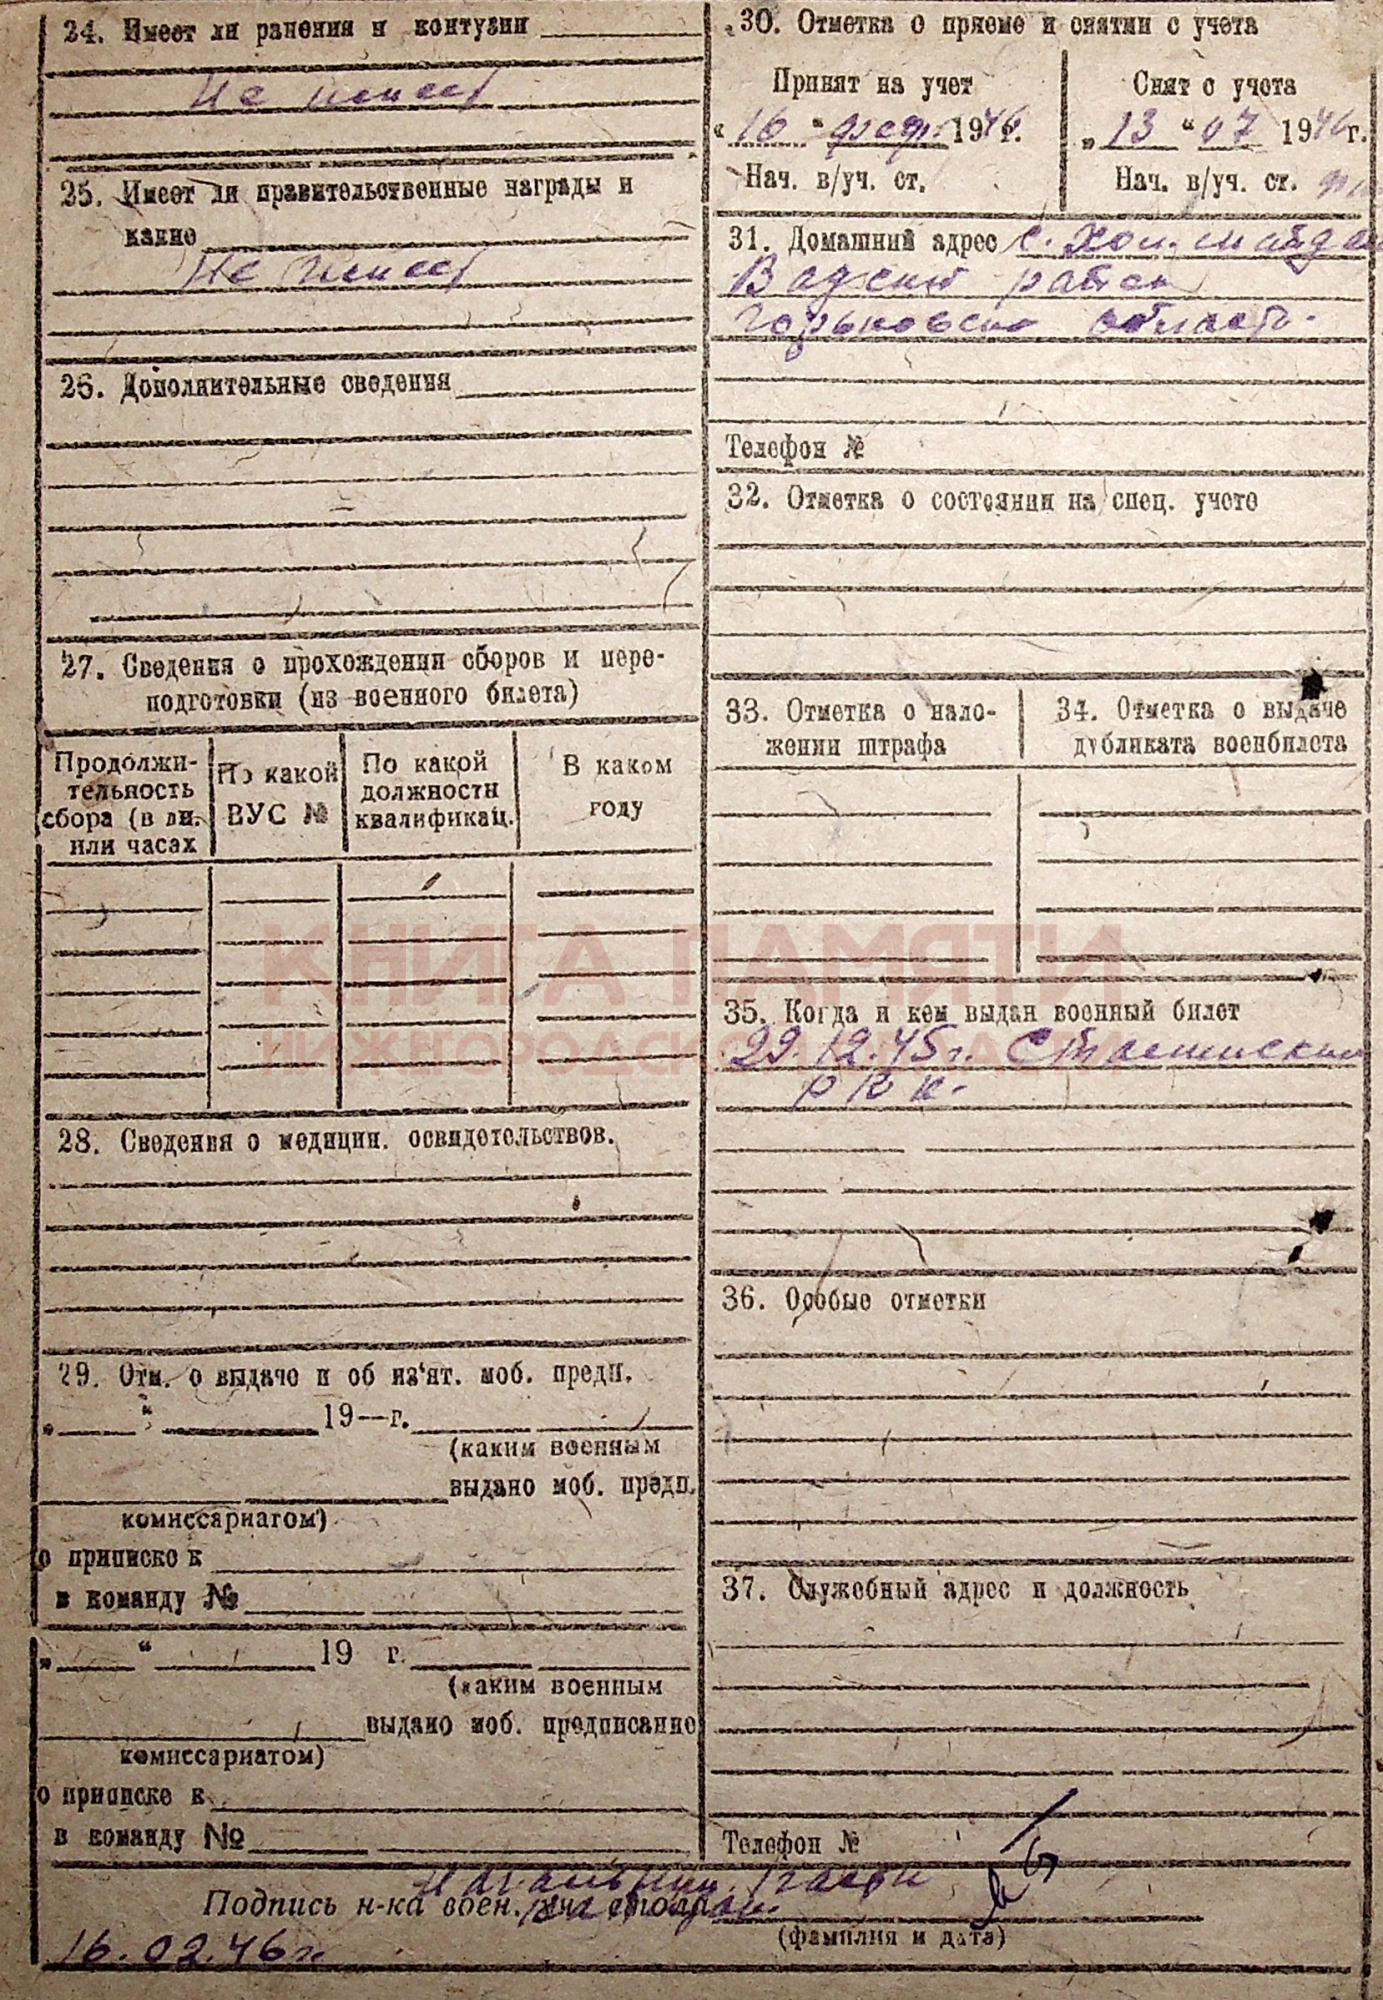 24. Имеет ли ранения и контузии
Не имеет
25. Имеет ли правительственные награды и
какие
Не имеет
26. Дополнительные сведения
27. Сведения о прохождении сборов и пере-
подготовки (из военного билета)
Продолжи-
тельность
сбора (в дн.
или часах
По какой
ВУС №
По какой
должности
квалификац.
В каком
году
28. Сведения о медицин. освидетельствов.
29. Отм. о выдаче и об из'ят. моб. предп.
„ “ 19—г.
(каким военным
выдано моб. предп.
комиссариатом)
о приписке к
в команду №
„ “ 19 г.
(каким военным
выдано моб. предписание
комиссариатом)
о приписке к
в команду №
30. Отметка о приеме и снятии с учета
Принят на учет
„16 “ февр. 1946г.
Нач. в/уч. ст.
Снят с учета
„13 “ 07 1946г.
Нач. в/уч. ст.
31. Домашний адрес с. Хол. майдан
Вадский район
Горьковской область.
Телефон №
32. Отметка о состоянии на спец. учете
33. Отметка о нало-
жении штрафа
34. Отметка о выдаче
дубликата военбилета
КНИГА ПАМЯТИ
НИЖЕГОРОДСКОЙ ОБЛАСТИ
35. Когда и кем выдан военный билет
29.12.45г. Сталинским
РВК.
36. Особые отметки
37. Служебный адрес и должность
Телефон №
Начальник части
Подпись н-ка воен. уч. стола
(фамилия и дата)
16.02.46г.